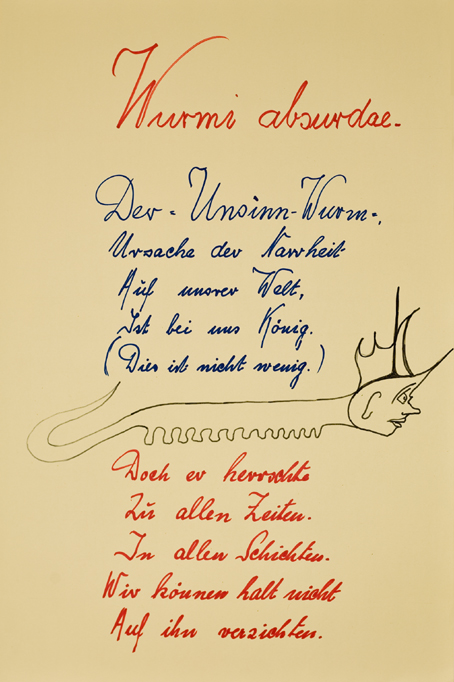 Wurmi absurdae.
Der - Unsinn-Wurm-,
Ursache der Narrheit
Auf unsrer Welt,
Ist bei uns König.
(Dies ist nicht wenig.)
Doch er herrschte
Zu allen Zeiten.
In allen Schichten.
Wir können halt nicht
Auf ihn verzichten.